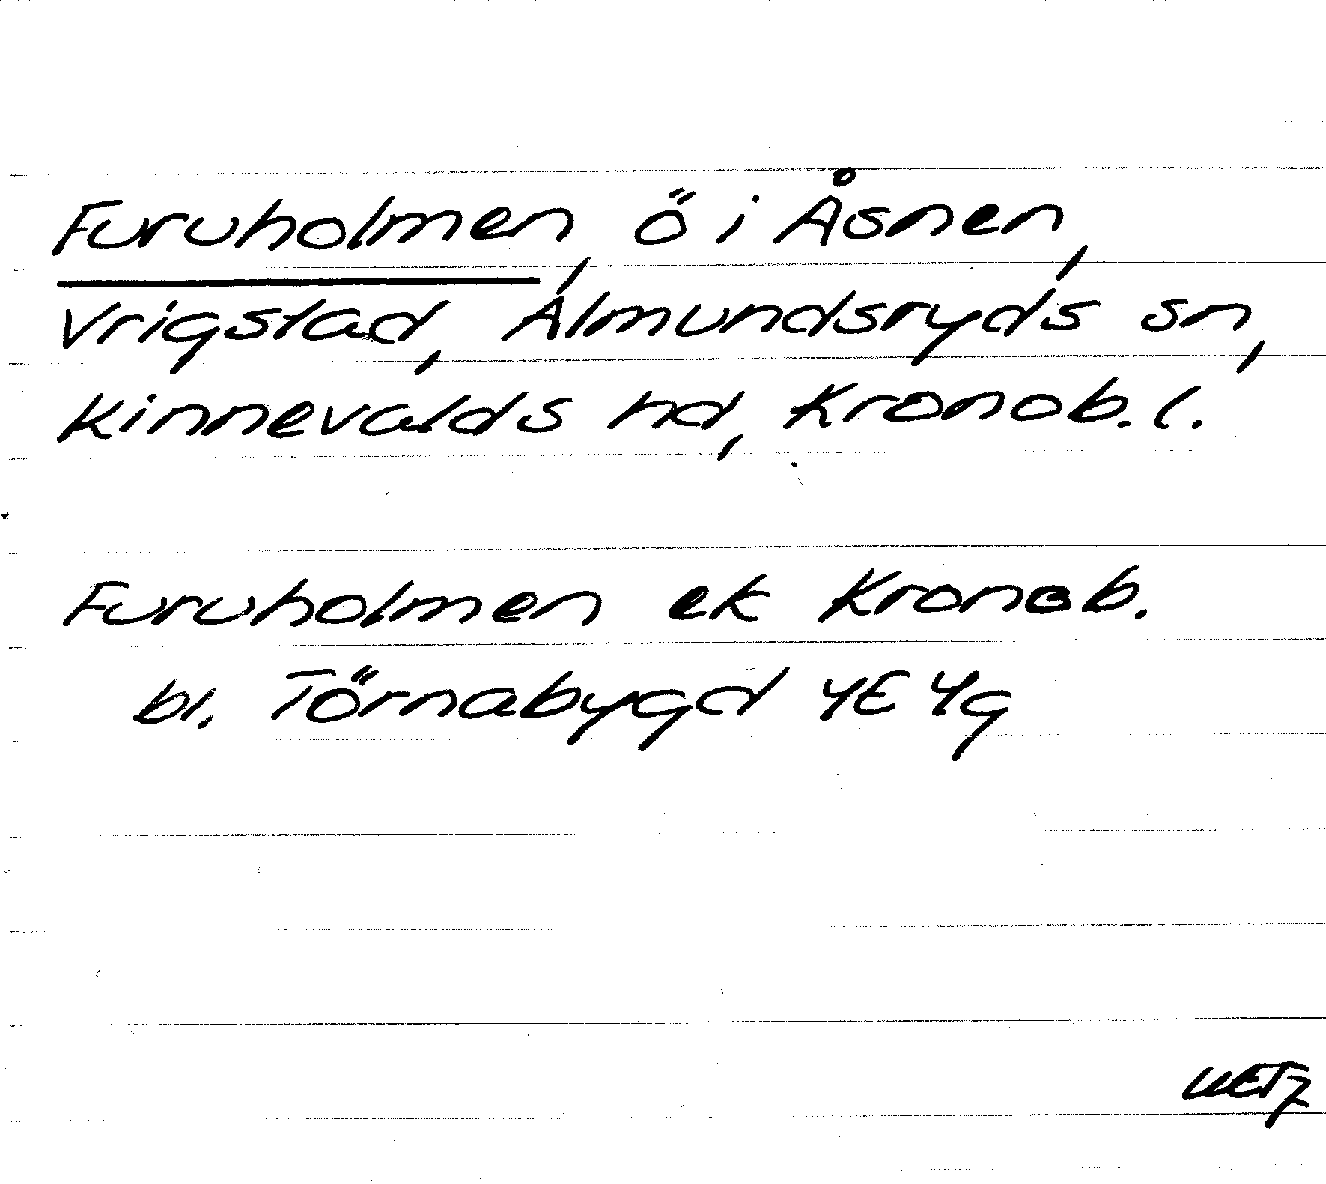 Furuholmen, ö i Åsnen,
Vrigstad, Almundsryds sn,
Kinnevalds hd, Kronob. l.
Furuholmen ek Kronob.
bl. Törnabygd 4E 4g